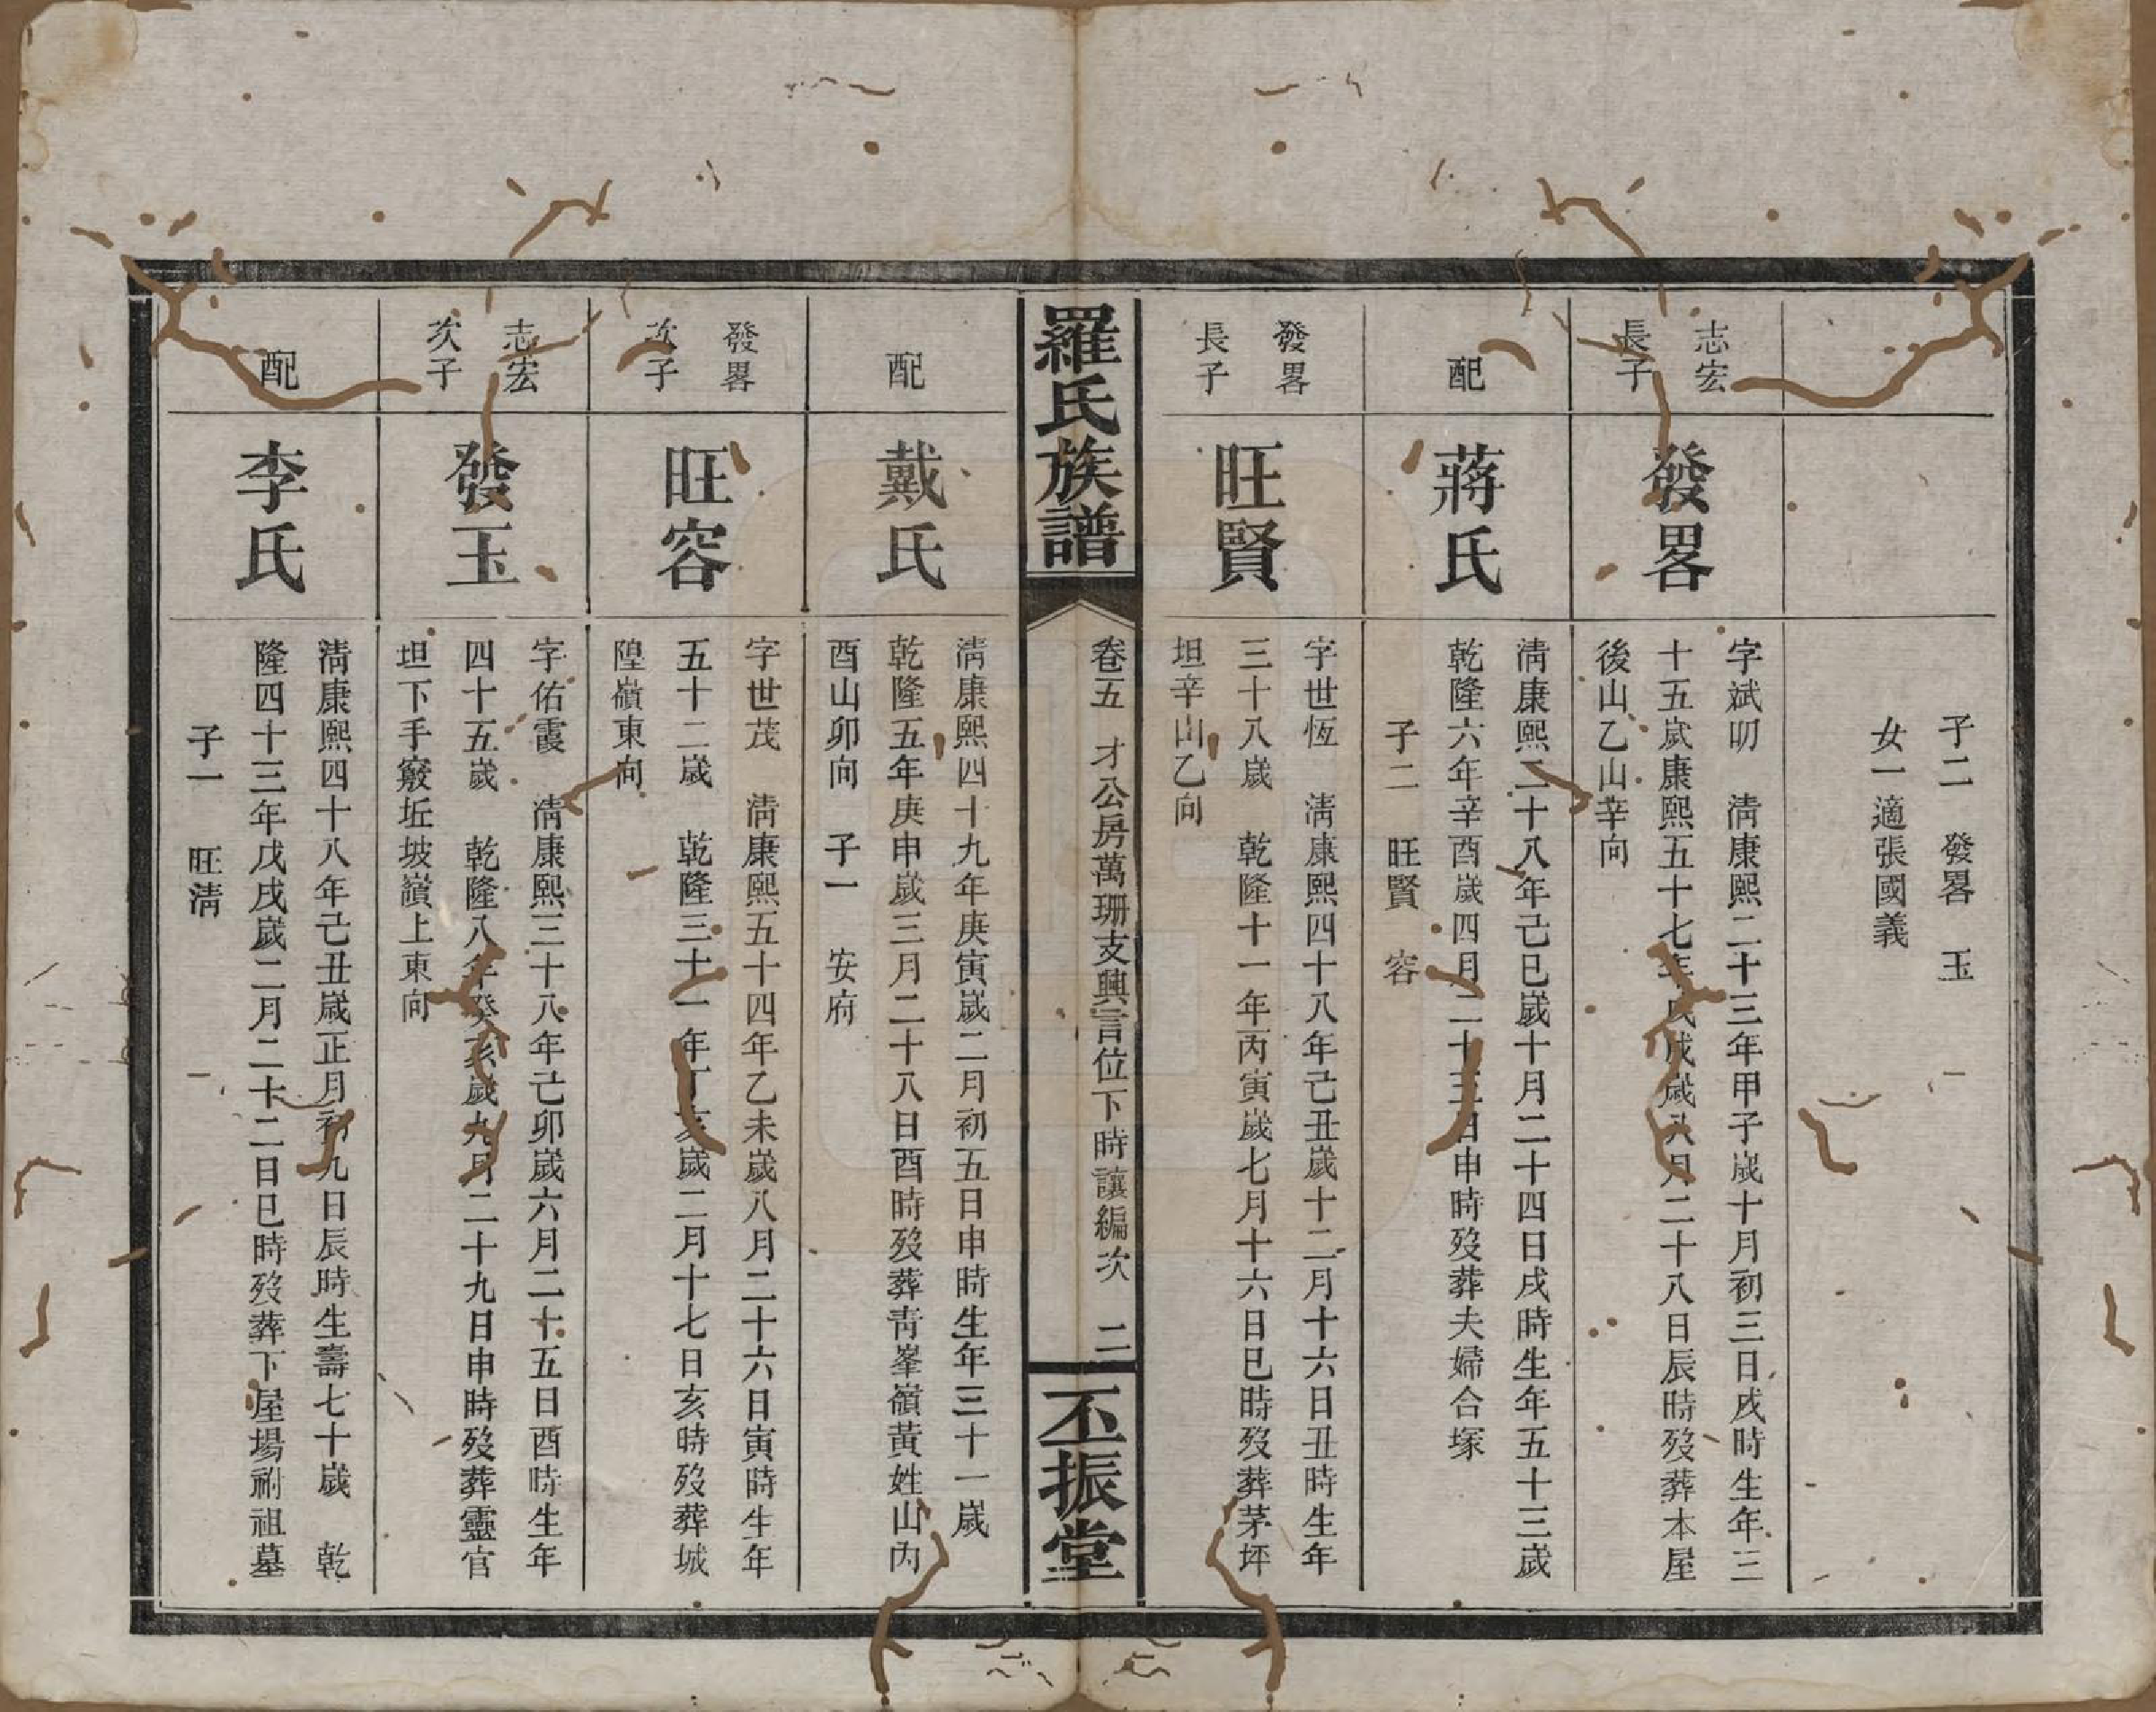 子二　發畧　玉
女一適張國義
志宏
長子
發畧
字斌叨　淸康熙二十三年甲子歲十月初三日戌時生年三
十五歲康熙五十七年戊戌歲八月二十八日辰時歿葬本屋
後山乙山辛向
配
蔣氏
淸康熙二十八年己巳歲十月二十四日戌時生年五十三歲
乾隆六年辛酉歲四月二十三日申時歿葬夫婦合塚
子二　旺賢　容
發畧
長子
旺賢
字世恆　淸康熙四十八年己丑歲十二月十六日丑時生年
三十八歲　乾隆十一年丙寅歲七月十六日巳時歿葬茅坪
坦辛山乙向
羅氏族譜
卷五　才公房萬珊支興言位下時讓編次　二
丕振堂
配
戴氏
淸康熙四十九年庚寅歲二月初五日申時生年三十一歲
乾隆五年庚申歲三月二十八日酉時歿葬靑峯嶺黃姓山內
酉山卯向　子一　安府
發畧
次子
旺容
字世茂　淸康熙五十四年乙未歲八月二十六日寅時生年
五十二歲　乾隆三十一年丁亥歲二月十七日亥時歿葬城
隍嶺東向
志宏
次子
發玉
字佑霞　淸康熙三十八年己卯歲六月二十五日酉時生年
四十五歲　乾隆八年癸亥歲九月二十九日申時歿葬靈官
坦下手竅坵坡嶺上東向
配
李氏
淸康熙四十八年己丑歲正月初九日辰時生壽七十歲　乾
隆四十三年戊戌歲二月二十二日巳時歿葬下屋場祔祖墓
子一　旺淸